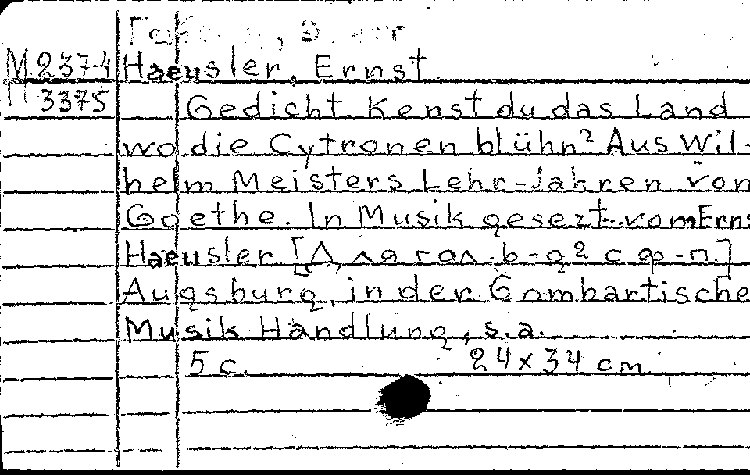 M 2374 Haeusler, Ernst
3375 Gedicht Kenst du das Land
wo die Cytronen blühn? Aus Wil-
helm Meisters Lehr-Jahren von
Goethe. In Musik gesezt vom Ernst
Haeusler [Для гол. b-g² с ф-п.]
Augsburg, in der Gombartische
Musik Handlung, s.a.
5 c. 24x34 cm